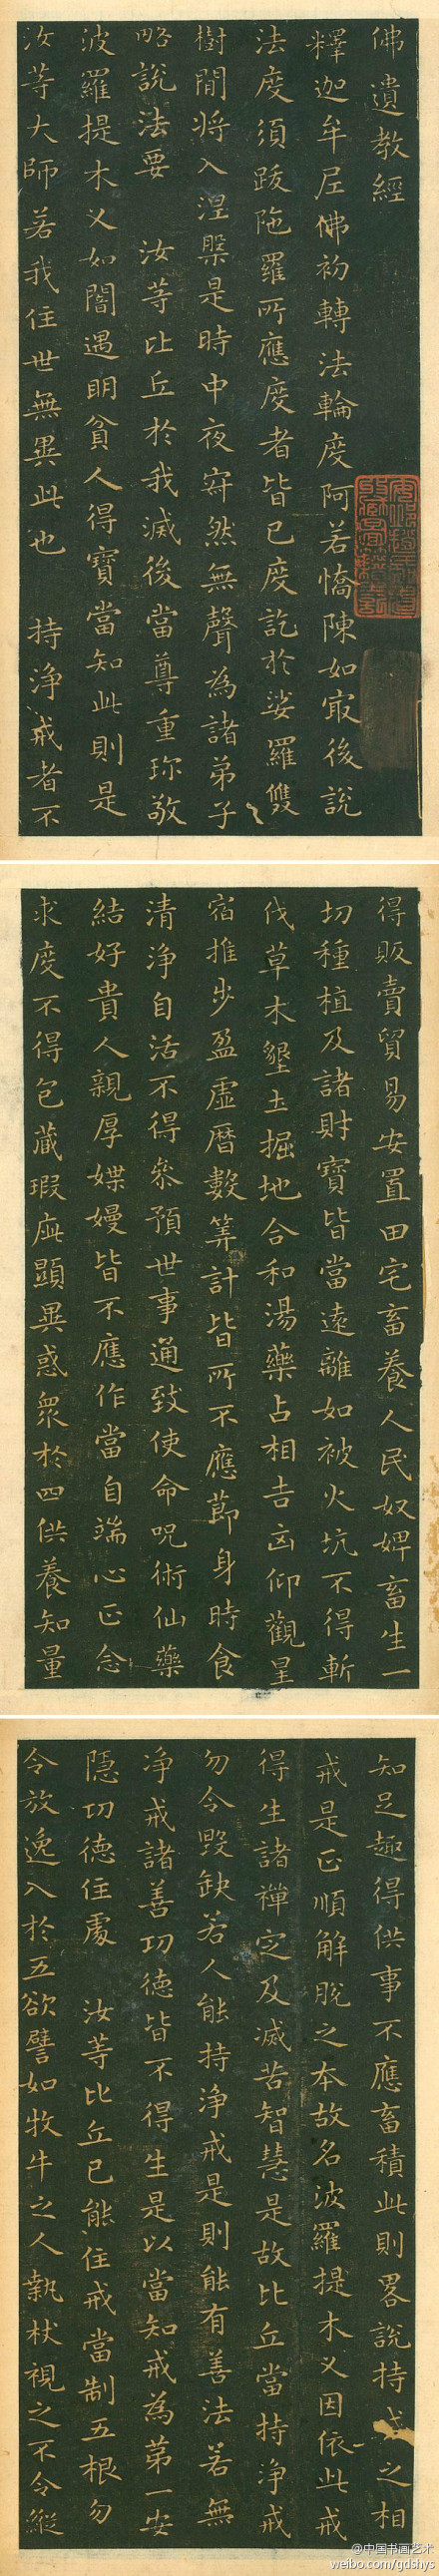 佛遺教經
釋迦牟尼佛初轉法輪度阿若憍陳如冣後說
法度須跋陁羅所應度者皆已度訖於娑羅雙
樹間将入涅槃是時中夜寂然無聲為諸弟子
略說法要　汝等比丘於我滅後當尊重珎敬
波羅提木义如闇遇明貧人得寶當知此則是
汝等大師若我住世無異此也　持淨戒者不
得販賣貿易安置田宅畜養人民奴婢畜生一
切種植及諸財寶皆當遠離如被火坑不得斬
伐草木墾土掘地合和湯藥占相吉凶仰觀星
宿推步盈虛曆數筭計皆所不應節身時食
清淨自活不得參預世事通致使命呪術仙藥
結好貴人親厚媟嫚皆不應作當自端心正念
求度不得包藏瑕疵顯異惑衆於四供養知量
知足趣得供事不應畜積此則畧說持戒之相
戒是正順解脫之本故名波羅提木义因依此戒
得生諸禪定及滅苦智慧是故比丘當持淨戒
勿令毀缺若人能持淨戒是則能有善法若無
淨戒諸善功德皆不得生是以當知戒為第一安
隱功德住處　汝等比丘已能住戒當制五根勿
令放逸入於五欲譬如牧牛之人執杖視之不令縱
@中国书画艺术
weibo.com/gdshys